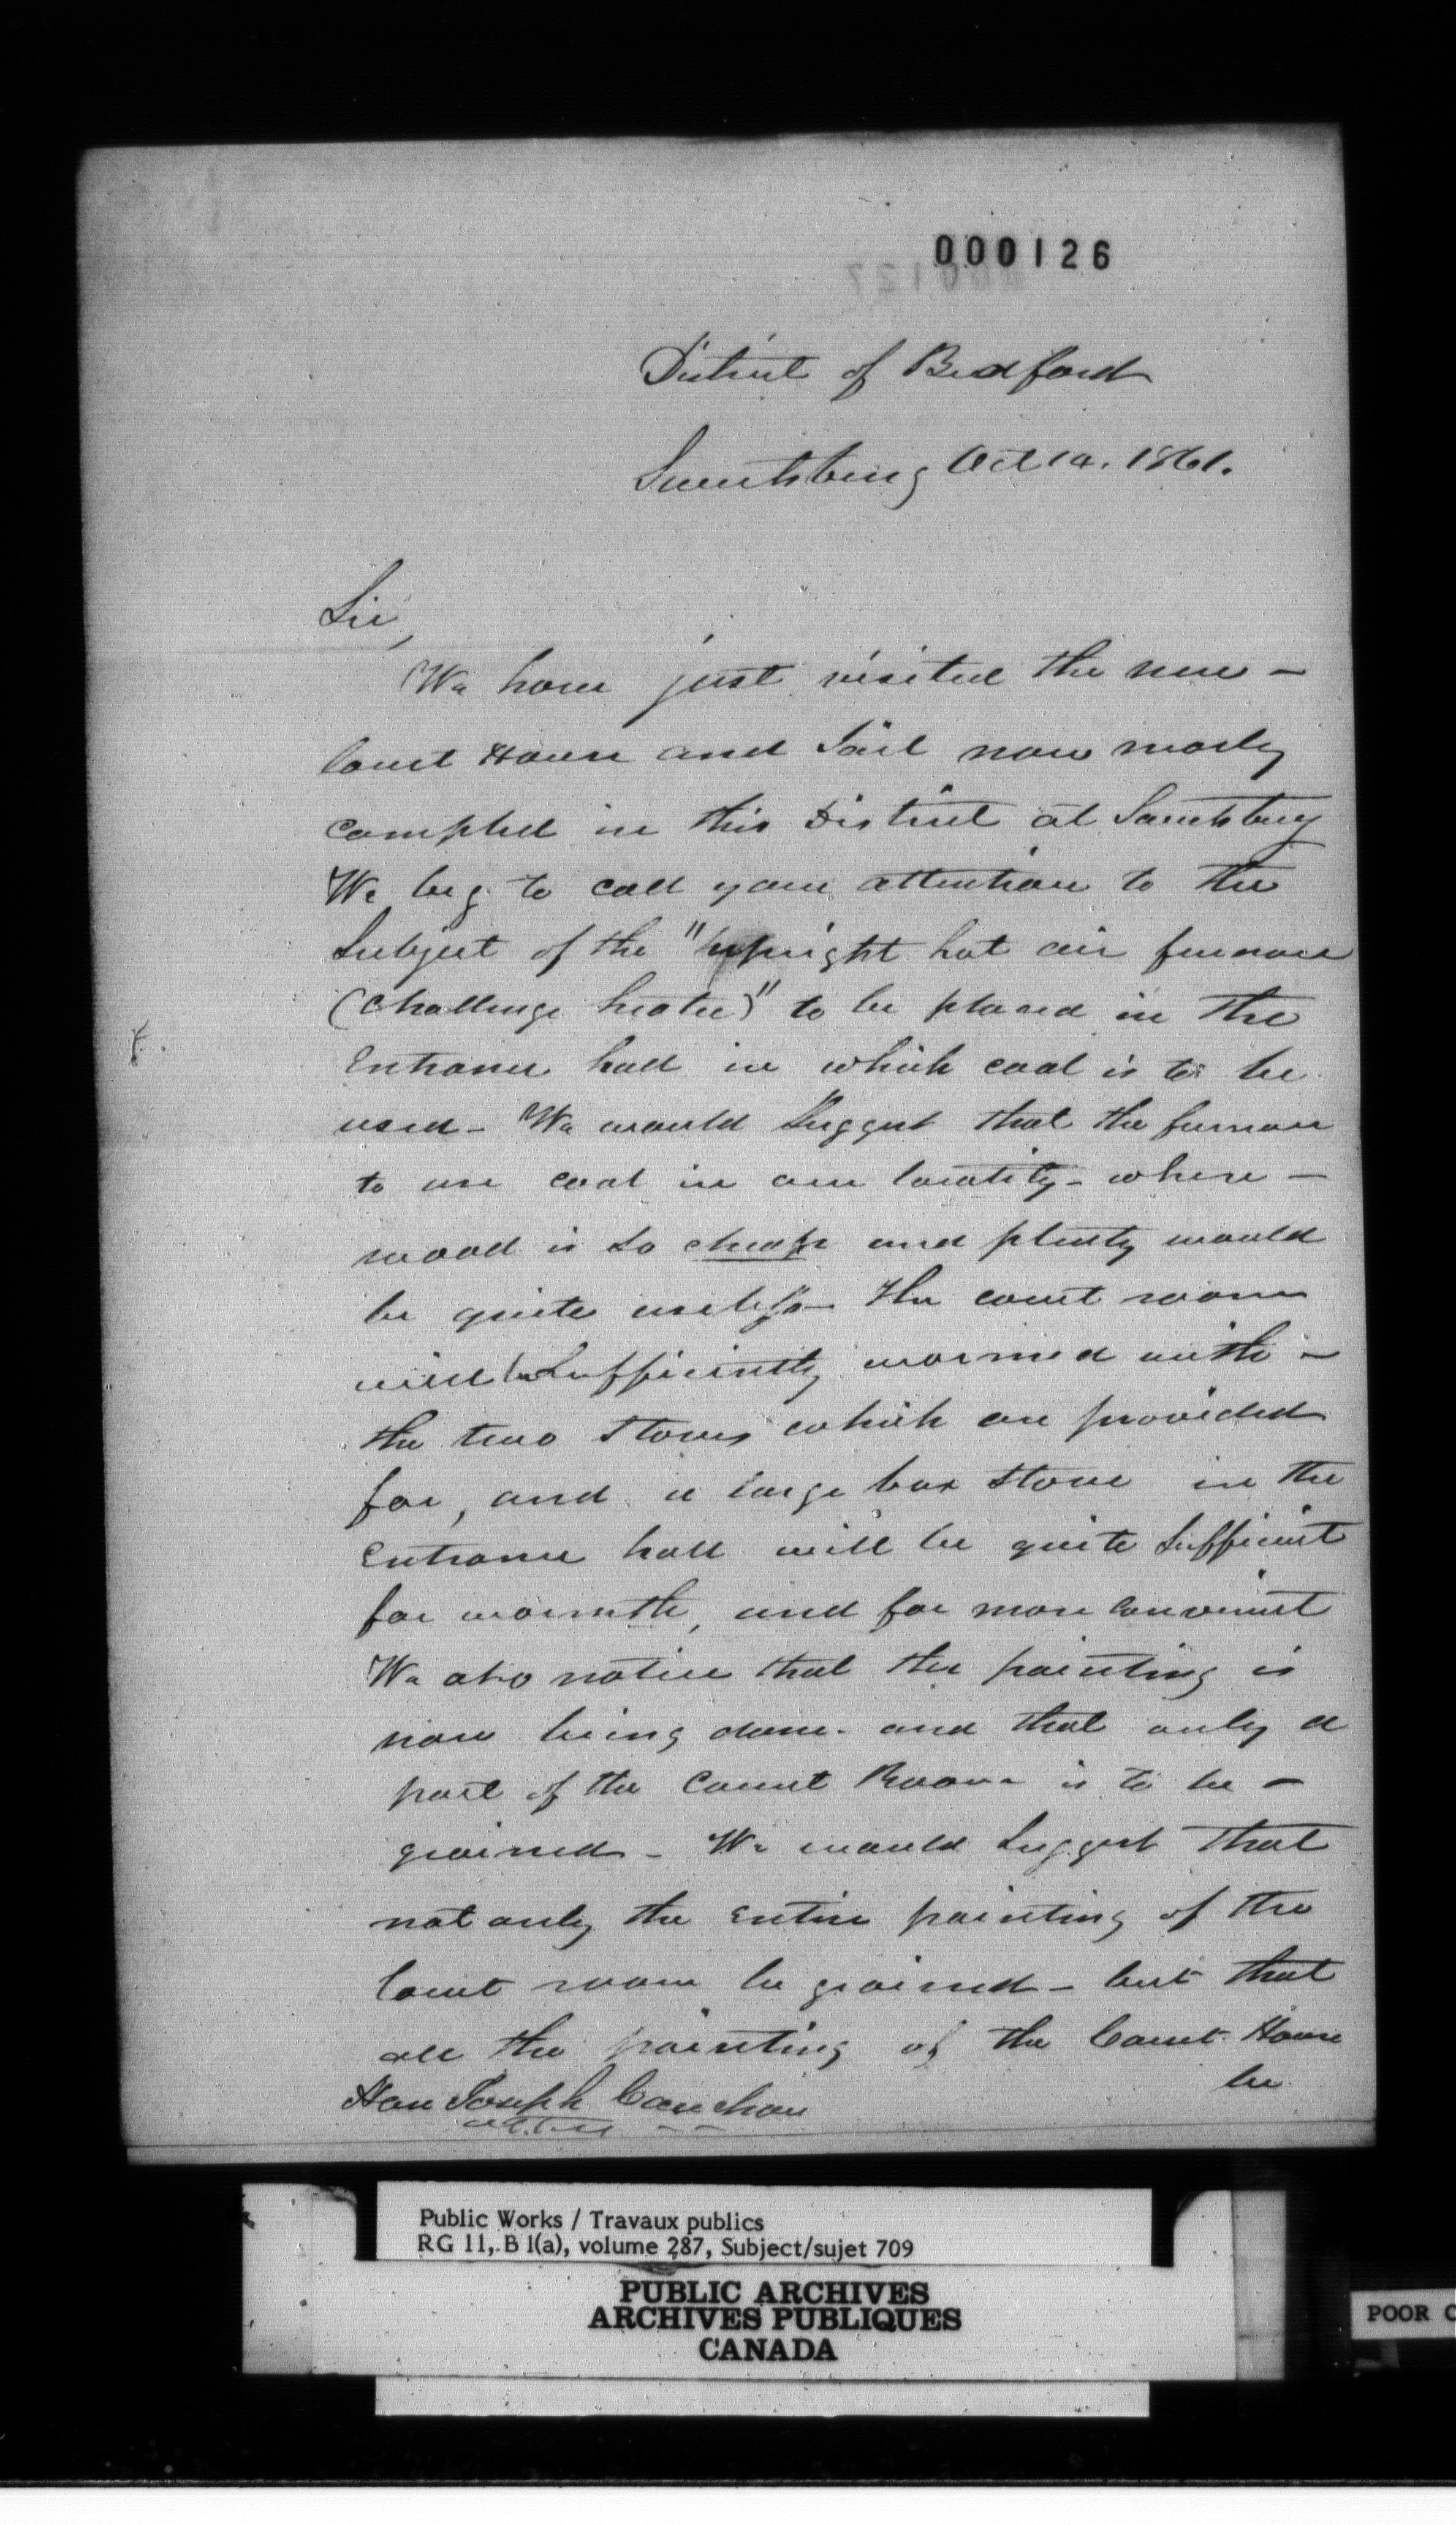 000126
District of Bedford
Sweetsburg Oct 14. 1861.
Sir,
We have just visited the new –
Court House and Jail now nearly
completed in this District at Sweetsburg
We beg to call your attention to the
Subject of the "upright hot air furnace
(Challenge heater)" to be placed in the
Entrance hall in which coal is to be
used – We would suggest that the furnace
to use coal in our locality – where –
wood is so cheap and plenty would
be quite useless – The court room
will be sufficiently warmed with –
the two stoves which are provided
for, and a large box stove in the
Entrance hall will be quite sufficient
for warmth, and far more convenient
We also notice that the painting is
now being done – and that only a
part of the Court Room is to be –
grained – We would suggest that
not only the entire painting of the
Court room be grained – but that
all the painting of the Court House
be
Hon Joseph Cauchon
Public Works / Travaux publics
RG 11, B 1(a), volume 287, Subject/sujet 709
PUBLIC ARCHIVES
ARCHIVES PUBLIQUES
CANADA
POOR C